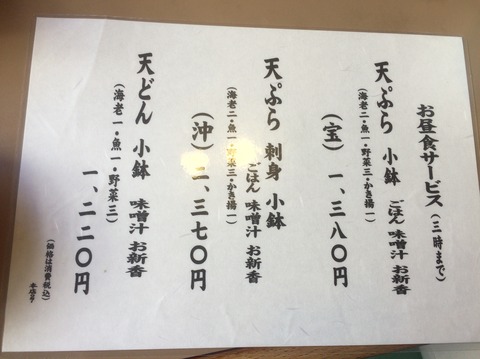 お昼食サービス(三時まで)
天ぷら 小鉢 ごはん 味噌汁 お新香
(海老二・魚一・野菜三・かき揚一)
(宝) 一、三八〇円
天ぷら 刺身 小鉢 ごはん 味噌汁 お新香
(海老二・魚一・野菜三・かき揚一)
(沖) 二、三七〇円
天どん 小鉢 味噌汁 お新香
(海老一・魚一・野菜三)
一、二二〇円
(価格は消費税込)